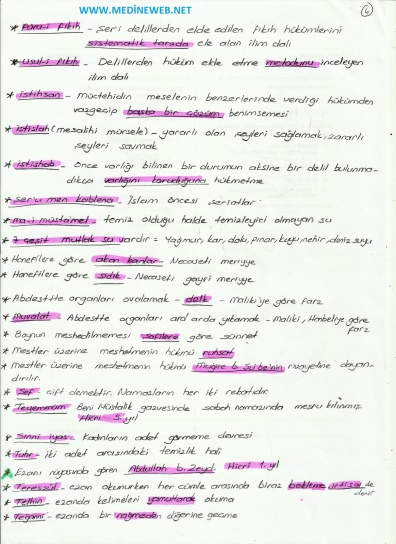 www.MEDINEWEB.NET
4
* Füru-i Fıkıh - Şer'i delillerden elde edilen fıkıh hükümlerini
sistematik tarzda ele alan ilim dalı
* Usul-i fıkıh - Delillerden hüküm elde etme metodunu inceleyen
ilim dalı
* istihsan - müctehidin meselenin benzerlerinde verdiği hükümden
vazgeçip başka bir çözüm benimsemesi
* istislah (mesalihi mürsele) - yararlı olan şeyleri sağlamak, zararlı
şeyleri savmak
* istishab - önce varlığı bilinen bir durumun aksine bir delil bulunma-
dıkça varlığını koruduğuna hükmetme
* şer'u men kablena - İslam öncesi şeriatlar
* ma-i müstamel - temiz olduğu halde temizleyici olmayan su
* 7 çeşit mutlak su vardır = Yağmur, kar, dolu, pınar, kuyu, nehir, deniz suyu
* Hanefilere göre akan kanlar - Necaseti meriyye
* Hanefilere göre sidik - Necaseti gayri meriyye
* Abdestte organları ovalamak - delk - Maliki'ye göre farz
* Muvalat - Abdestte organları ard arda yıkamak - Maliki, Hanbeliye göre
farz
* Boynun meshedilmemesi Şafilere göre sünnet
* Mestler üzerine meshetmenin hükmü ruhsat
* Mestler üzerine meshetmenin hükmü Muğire b. Şu'be'nin rivayetine dayan-
dırılır.
* Şef çift demektir. Namazların her iki rekatıdır
* Teyemmüm Beni Müstalik gazvesinde sabah namazında meşru kılınmış
Hicri 5. yıl
* Sinni iyas - Kadınların adet görmeme devresi
* Tuhr - iki adet arasındaki temizlik hali
* Ezanı rüyasında gören Abdullah b. Zeyd. Hicri 1. yıl
* Teressül - ezan okunurken her cümle arasında biraz bekleme, irtisal de
denir
* Telhin - ezanda kelimeleri yamultarak okuma
* Teganni - ezanda bir nağmeden diğerine geçme